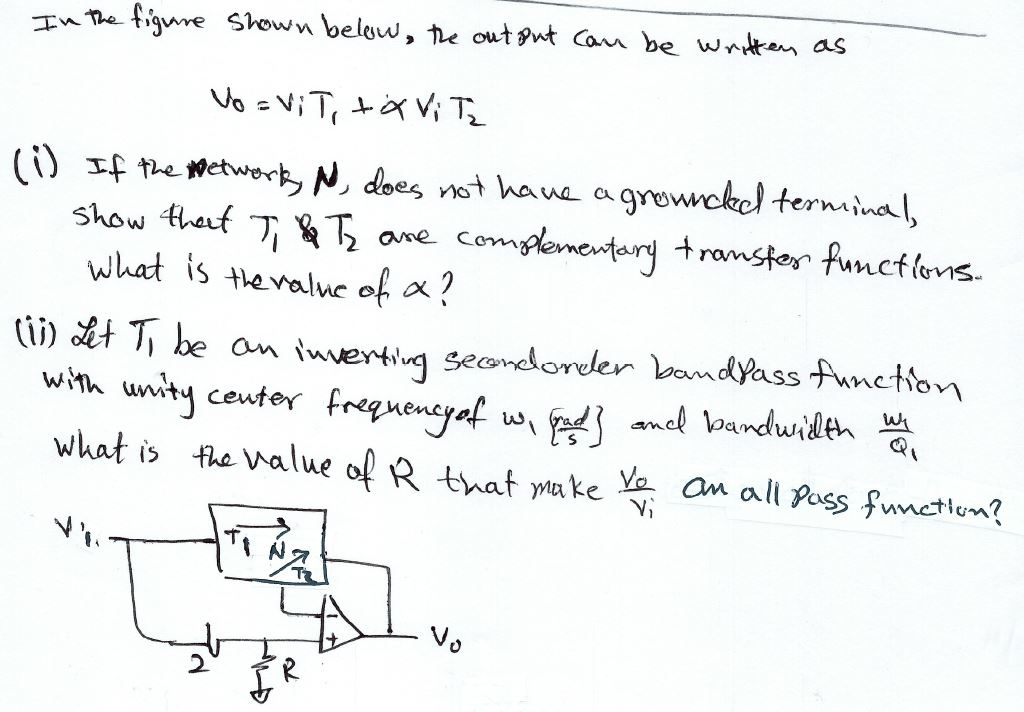 In the figure shown below, the output can be written as
Vo = Vi T1 + α Vi T2
(i) If the network, N, does not have a grounded terminal,
show that T1 & T2 are complementary transfer functions.
What is the value of α?
(ii) Let T1 be an inverting second order bandpass function
with unity center frequency of w1 [rad/s] and bandwidth w1/Q1
What is the value of R that make Vo/Vi an all pass function?
Vi
T1
N
T2
-
+
Vo
2
R